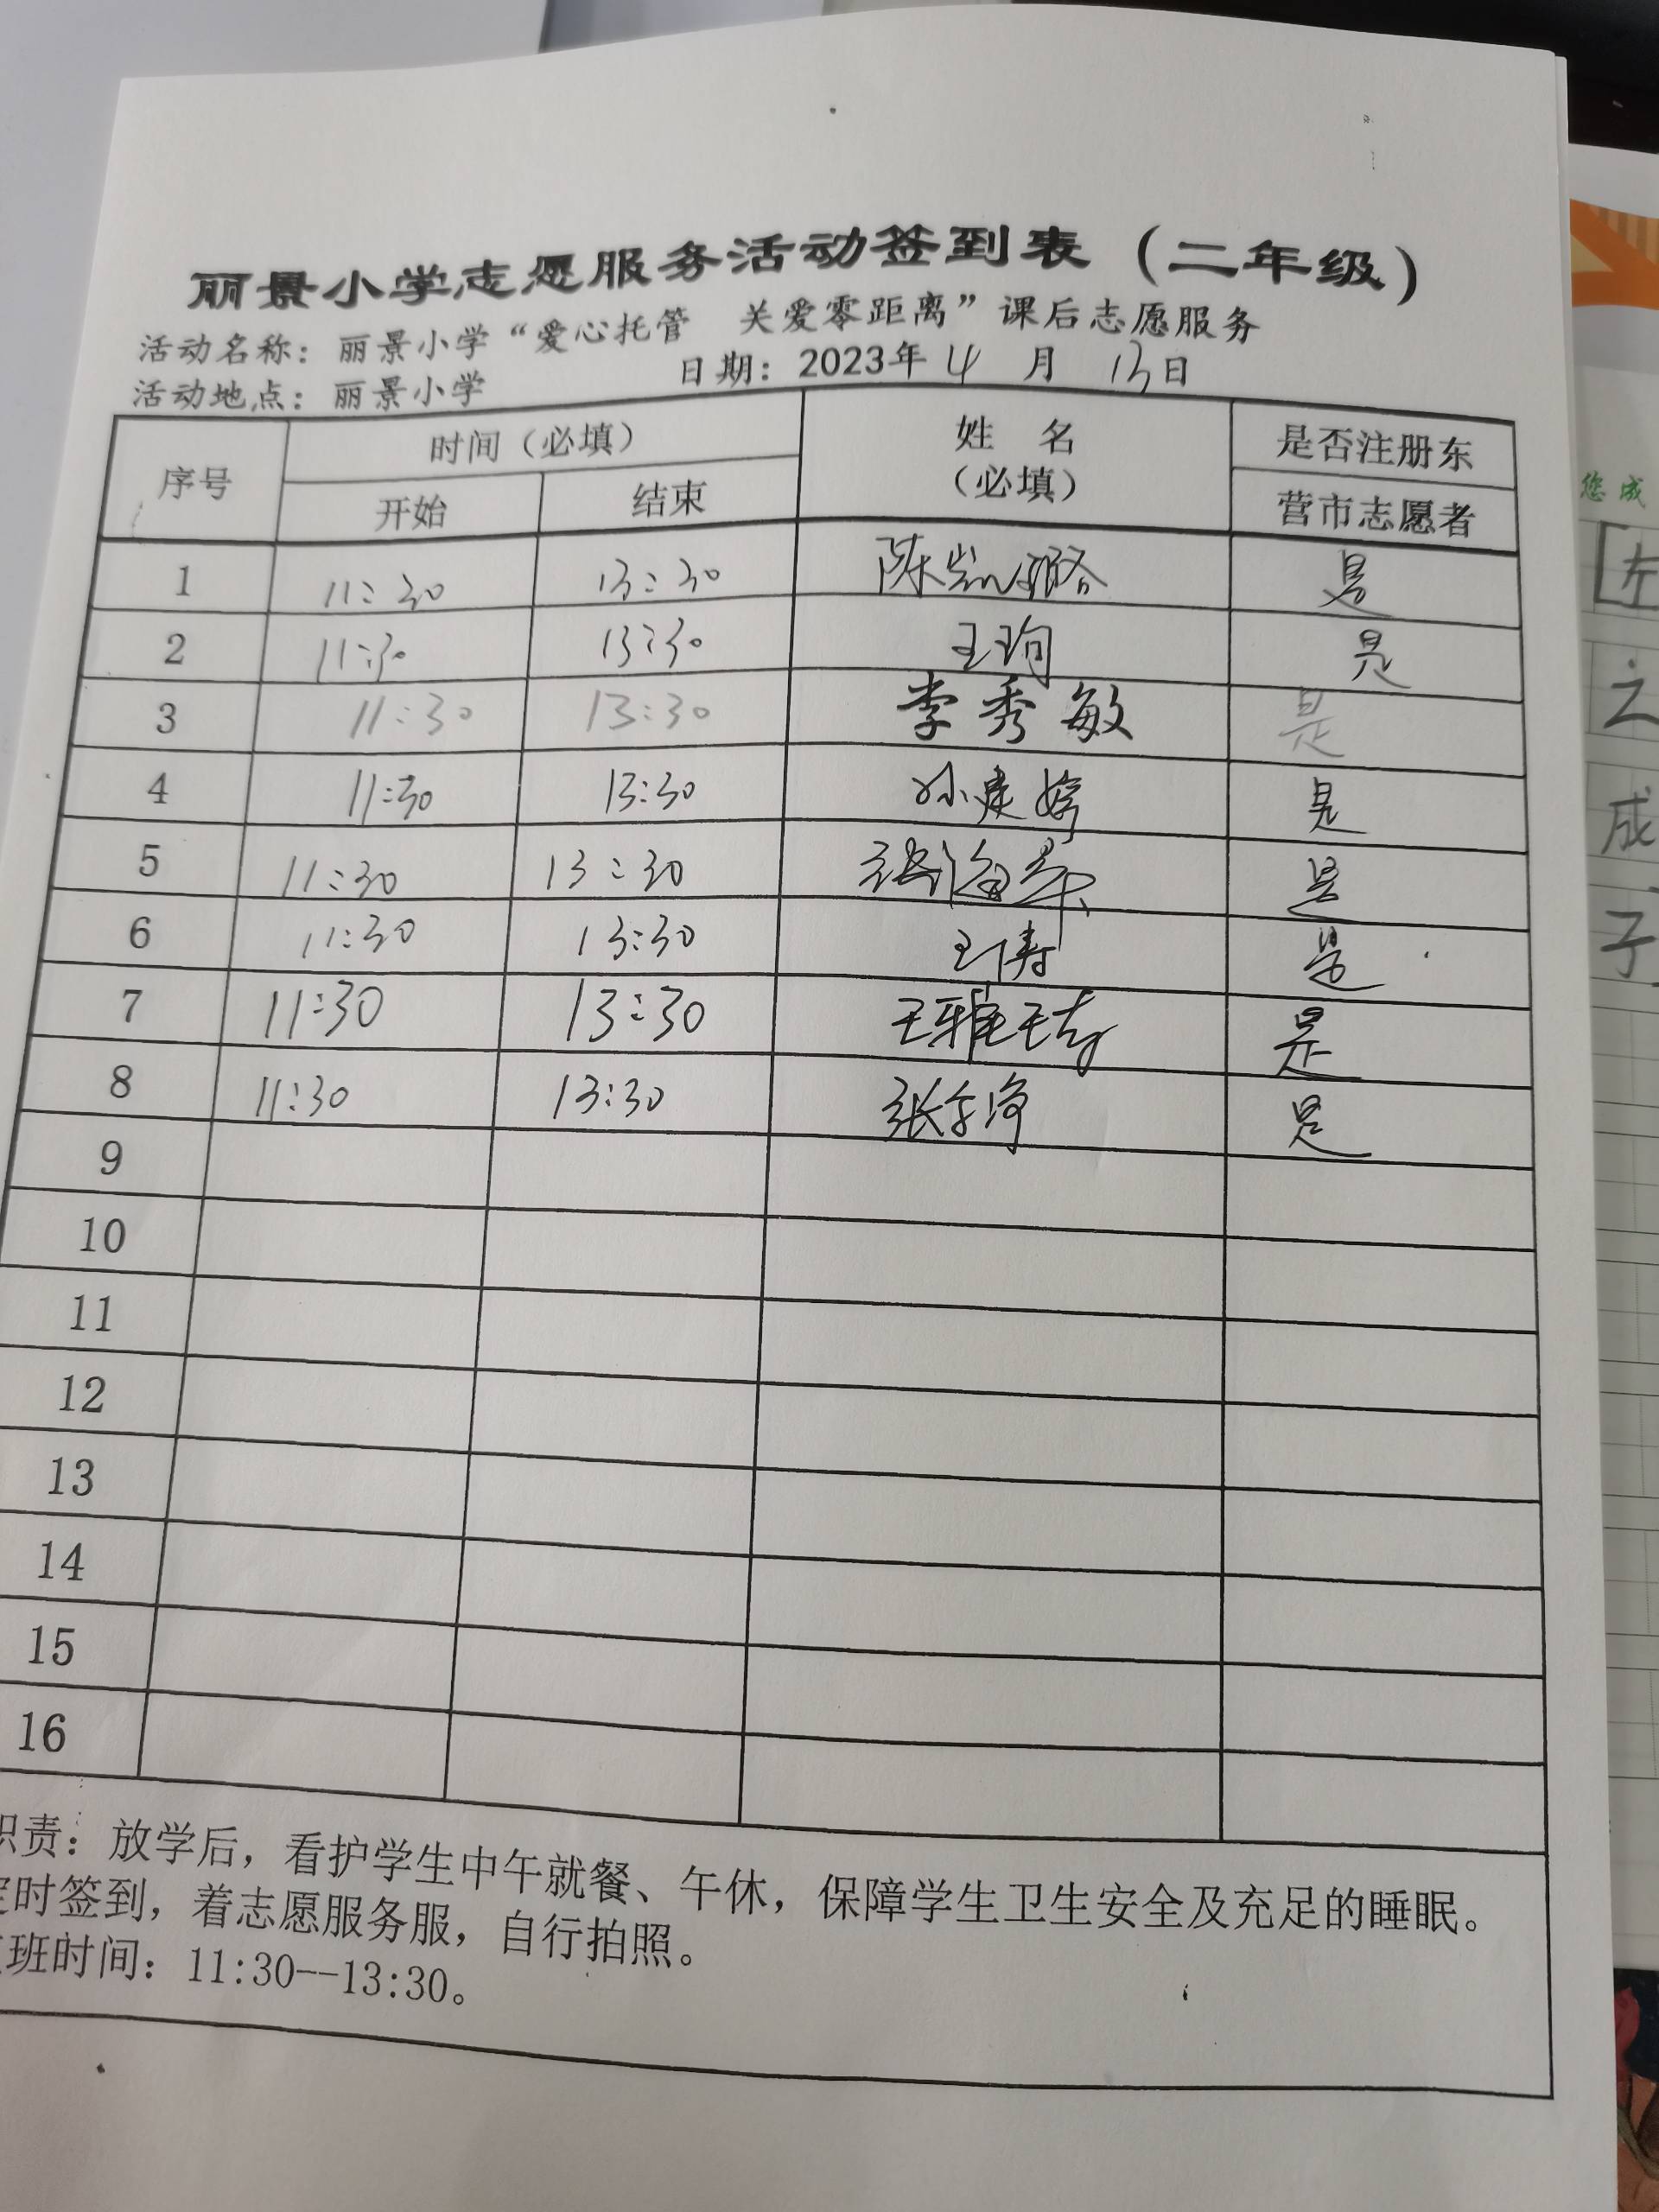 丽景小学志愿服务活动签到表（二年级）
活动名称：丽景小学“爱心托管 关爱零距离”课后志愿服务
活动地点：丽景小学 日期：2023年4月13日
序号 时间（必填） 姓名（必填） 是否注册东营市志愿者
开始 结束
1 11:30 13:30 陈 是
2 11:30 13:30 王珣 是
3 11:30 13:30 李秀敏 是
4 11:30 13:30 孙建婷 是
5 11:30 13:30 张海军 是
6 11:30 13:30 王倩 是
7 11:30 13:30 王雅 是
8 11:30 13:30 张 是
9
10
11
12
13
14
15
16
职责：放学后，看护学生中午就餐、午休，保障学生卫生安全及充足的睡眠。
时签到，着志愿服务服，自行拍照。
班时间：11:30--13:30。
您成
左
之
成
子